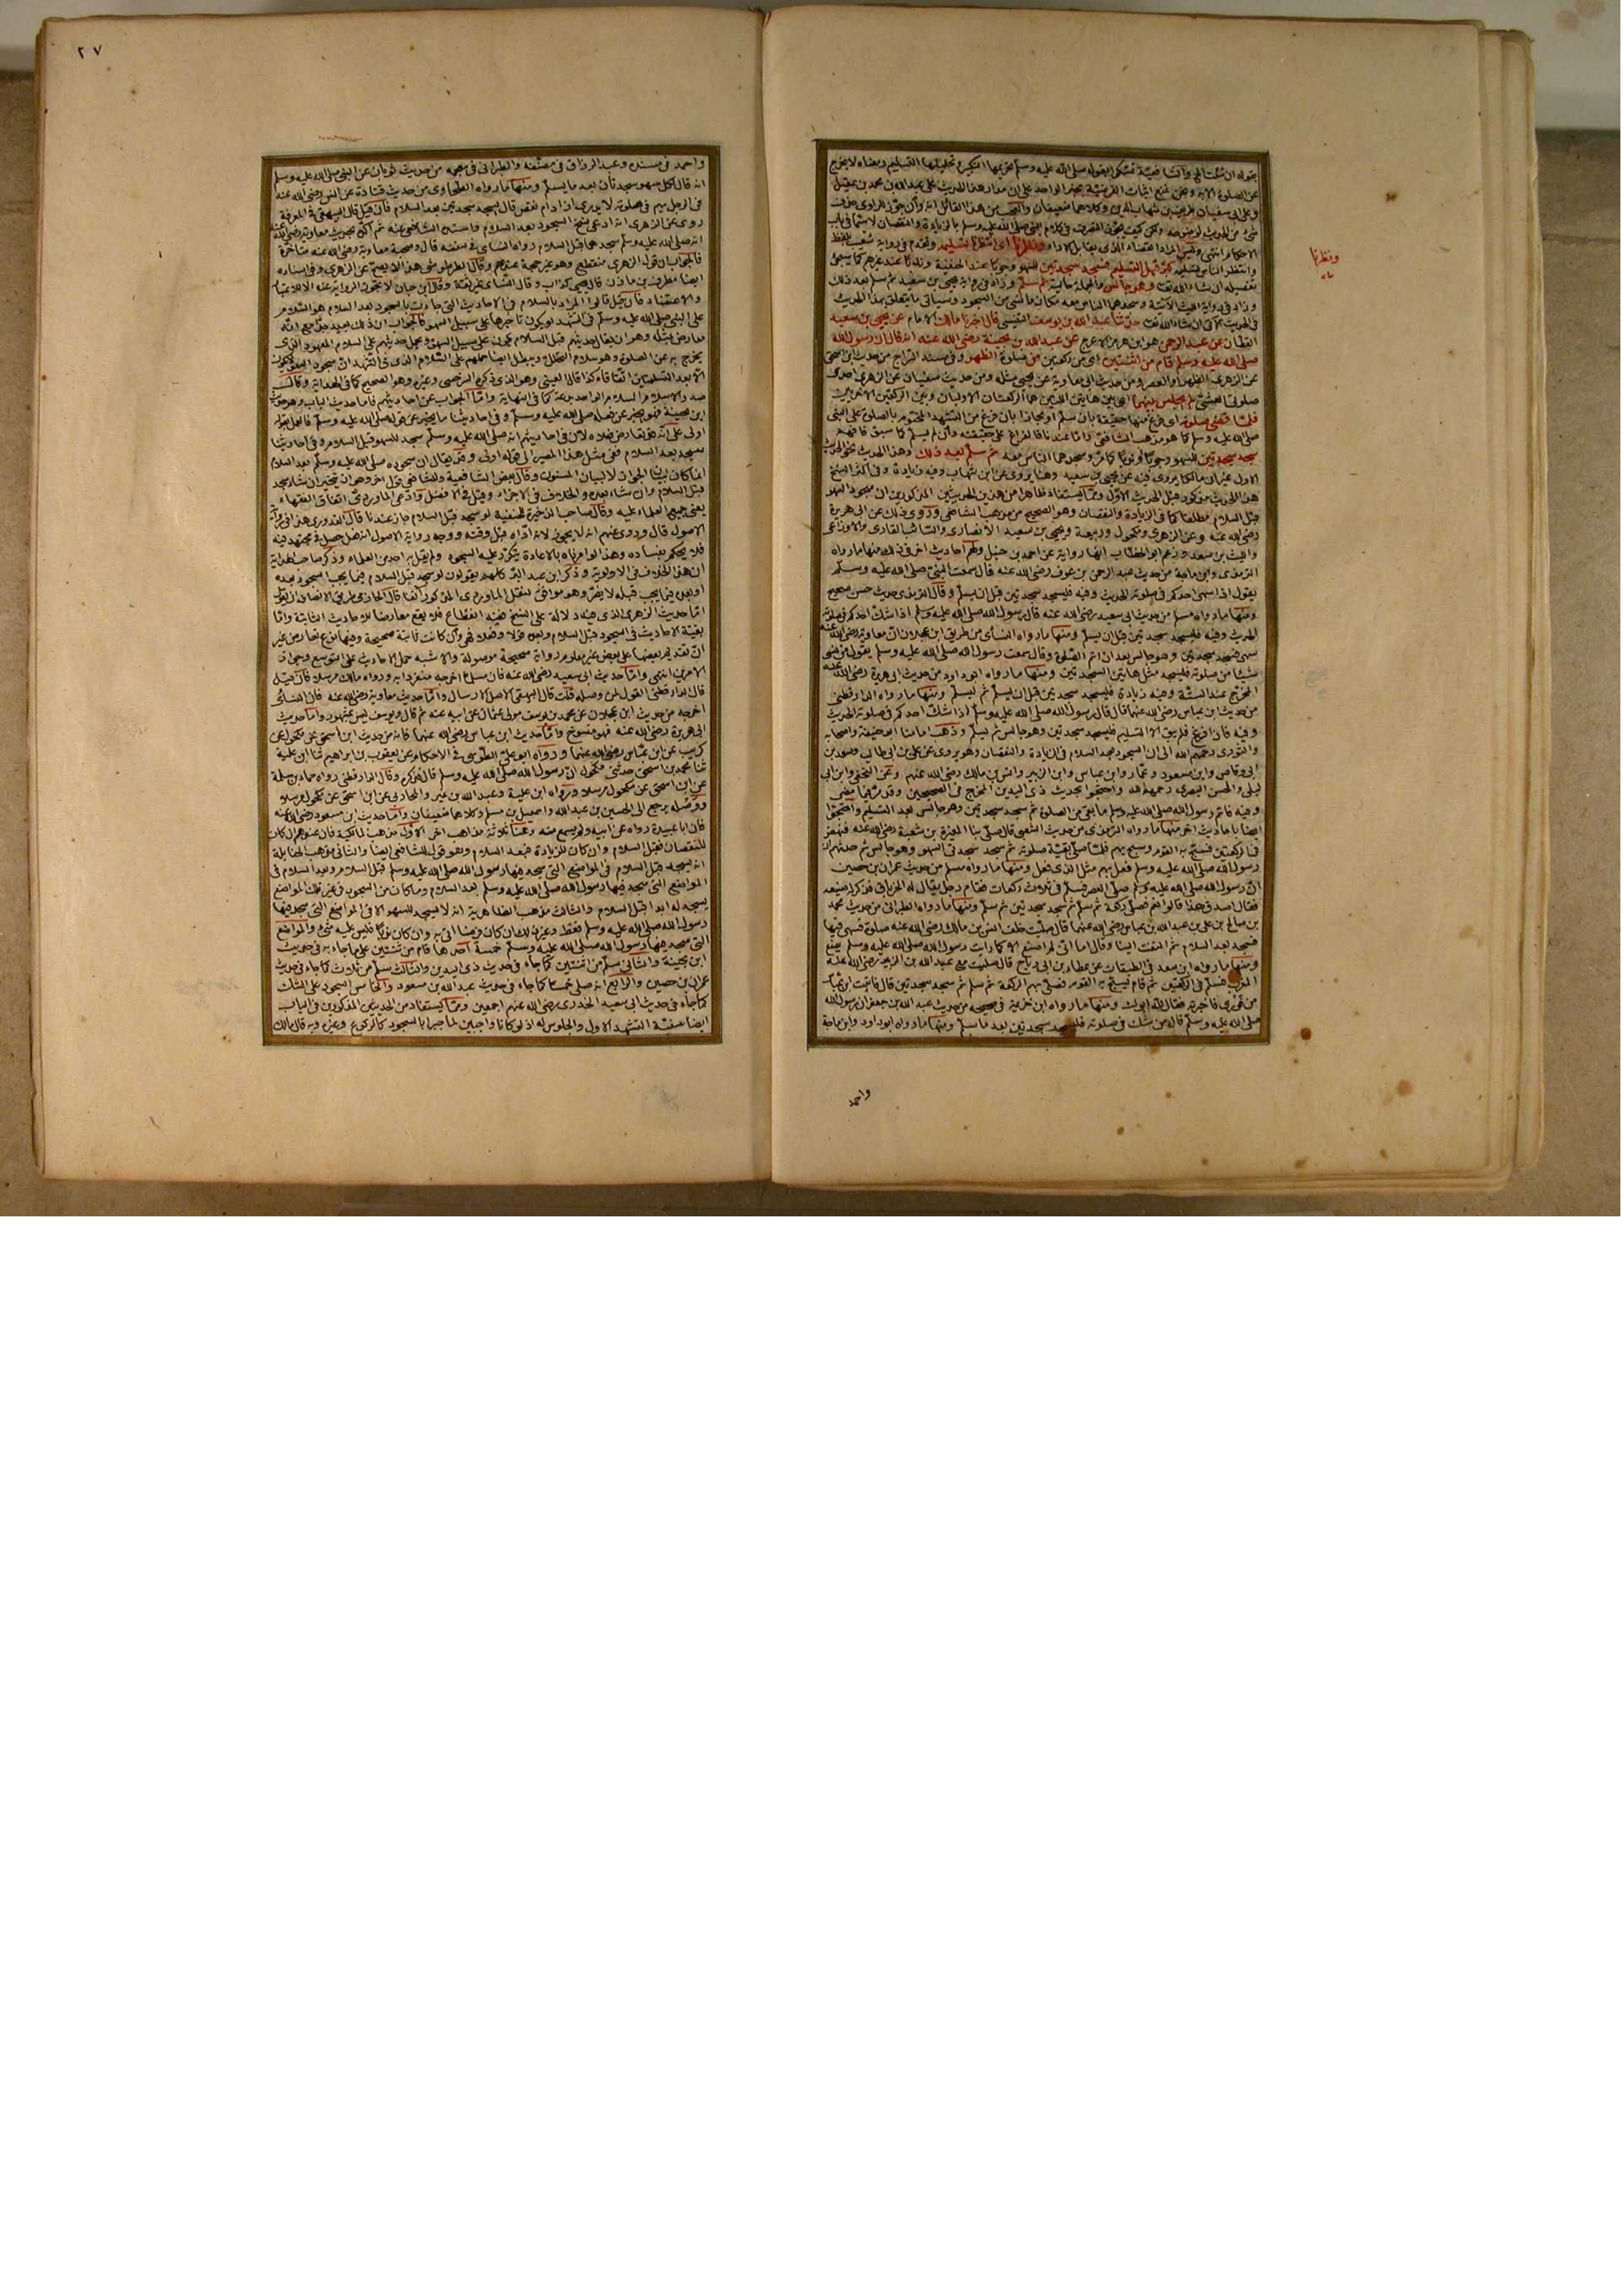 بقوله ان شاء الله والشافعية تمسكوا بقوله صلى الله عليه وسلم تحريمها التكبير وتحليلها التسليم ومعناه لا يخرج
عن الصلوة الا به ونحن نمنع اثبات الفرضية بخبر الواحد على ان مدار هذا الحديث على عبد الله بن محمد بن عقيل
وعلى ابي سفيان طريف بن شهاب وكلاهما ضعيفان والعجب من هذا القائل انه
شئ من الحديث كيف يجوز التصرف في كلام النبي صلى الله عليه وسلم بالزيادة والنقصان لا سيما في باب
الاحكام انتهى وليس المراد القضاء الذي يقابل الاداء ونظرنا اى انتظرنا تسليمه وتقدم في رواية شعيب بلفظ
وانتظر الناس تسليمه كبر قبل التسليم فسجد سجدتين للسهو وجوبا عند الحنفية وندبا عند غيرهم كما سيجئ
تفصيله ان شاء الله تعالى وهو جالس والجملة حالية ثم سلم وزاد في رواية يحيى بن سعيد ثم سلم بعد ذلك
وزاد في رواية الليث الآتية وسجدهما الناس معه مكان ما نسي من الجلوس وسيأتي ما يتعلق بهذا الحديث
في الحديث الآتي ان شاء الله تعالى حدثنا عبد الله بن يوسف التنيسي قال اخبرنا مالك الامام عن يحيى بن سعيد
القطان عن عبد الرحمن هو ابن هرمز الاعرج عن عبد الله بن بحينة رضى الله عنه انه قال ان رسول الله
صلى الله عليه وسلم قام من اثنتين اى من ركعتين من صلوة الظهر وفي مسند السراج من حديث ابن اسحق
عن الزهري الظهر او العصر ومن حديث ابي معاوية عن يحيى مثله ومن حديث سفيان عن الزهري احدى
صلوتي العشي لم يجلس بينهما اى بين هاتين اللتين هما الركعتان الاوليان وبين الركعتين الاخريين
فلما قضى صلوته اى فرغ منها حقيقة بان سلم او مجازا بان فرغ من التشهد المختوم بالصلوة على النبي
صلى الله عليه وسلم كما هو مذهب الشافعي واما عندنا فالفراغ على حقيقته وان لم يسلم كما سبق فافهم
سجد سجدتين للسهو وجوبا او ندبا كما مر وسجدهما الناس معه ثم سلم بعد ذلك وهذا الحديث نحو الحديث
الاول غير ان مالكا يروى فيه عن يحيى بن سعيد وهنا يروى عن ابن شهاب وفيه زيادة وفي اكثر النسخ
هذا الحديث مذكور قبل الحديث الاول ومما يستفاد ظاهرا من هذين الحديثين المذكورين ان سجود السهو
قبل السلام مطلقا كما في الزيادة والنقصان وهو الصحيح من مذهب الشافعي وروى ذلك عن ابي هريرة
رضى الله عنه وعن الزهري ومكحول وربيعة ويحيى بن سعيد الانصاري والسائب القاري والاوزاعي
والليث بن سعد وزعم ابو الخطاب انها رواية عن احمد بن حنبل ولهم احاديث اخر في ذلك منها ما رواه
الترمذي وابن ماجة من حديث عبد الرحمن بن عوف رضى الله عنه قال سمعت النبي صلى الله عليه وسلم
يقول اذا سهى احدكم في صلوته الحديث وفيه فليسجد سجدتين قبل ان يسلم وقال الترمذي حديث حسن صحيح
ومنها ما رواه مسلم من حديث ابي سعيد رضى الله عنه قال رسول الله صلى الله عليه وسلم اذا شك احدكم في صلوته
الحديث وفيه فليسجد سجدتين قبل ان يسلم ومنها ما رواه النسائي من طريق ابن عجلان ان معاوية رضى الله عنه
سهى فسجد سجدتين وهو جالس بعد ان اتم الصلوة وقال سمعت رسول الله صلى الله عليه وسلم يقول من نسي
شيئا من صلوته فليسجد مثل هاتين السجدتين ومنها ما رواه ابو داود من حديث ابي هريرة رضى الله عنه
المخرج عند الستة وفيه زيادة فليسجد سجدتين قبل ان يسلم ثم ليسلم ومنها ما رواه الدارقطني
من حديث ابن عباس رضى الله عنهما قال قال رسول الله صلى الله عليه وسلم اذا شك احدكم في صلوته الحديث
وفيه فاذا فرغ فلم يبق الا التسليم فليسجد سجدتين وهو جالس ثم يسلم وذهب امامنا ابو حنيفة واصحابه
والثوري رحمهم الله الى ان السجود بعد السلام في الزيادة والنقصان وهو مروي عن علي بن ابي طالب وسعد بن
ابي وقاص وابن مسعود وعمار وابن عباس وابن الزبير وانس بن مالك رضى الله عنهم وعن النخعي وابن ابي
ليلى والحسن البصري رحمهم الله واحتجوا بحديث ذى اليدين المخرج في الصحيحين وقد مر فيما مضى
وفيه فاتم رسول الله صلى الله عليه وسلم ما بقى من الصلوة ثم سجد سجدتين وهو جالس بعد التسليم واحتجوا
ايضا باحاديث اخر منها ما رواه الترمذي من حديث الشعبي قال صلى بنا المغيرة بن شعبة رضى الله عنه فنهض
في الركعتين فسبح به القوم وسبح بهم فلما صلى بقية صلوته ثم سجد سجدتي السهو وهو جالس ثم حدثهم ان
رسول الله صلى الله عليه وسلم فعل بهم مثل الذي فعل ومنها ما رواه مسلم من حديث عمران بن حصين
ان رسول الله صلى الله عليه وسلم صلى العصر فسلم في ثلاث ركعات فقام رجل يقال له الخرباق فذكر له صنيعه
فقال اصدق هذا قالوا نعم فصلى ركعة ثم سلم ثم سجد سجدتين ثم سلم ومنها ما رواه الطبراني من حديث محمد
بن صالح بن علي بن عبد الله بن عباس رضى الله عنهما قال صليت خلف انس بن مالك رضى الله عنه صلوة فسهى فيها
فسجد بعد السلام ثم التفت الينا وقال اما اني لم اصنع الا كما رايت رسول الله صلى الله عليه وسلم يصنع
ومنها ما رواه ابن سعد في الطبقات عن عطاء بن ابي رباح قال صليت مع عبد الله بن الزبير رضى الله عنه
المغرب فسلم في الركعتين ثم قام فسبح به القوم فصلى بهم الركعة ثم سلم ثم سجد سجدتين قال فاتيت ابن عباس
من فوري فاخبرته فقال لله ابوك ومنها ما رواه ابن خزيمة في صحيحه من حديث عبد الله بن جعفر ان رسول الله
صلى الله عليه وسلم قال من شك في صلوته فليسجد سجدتين بعد ما سلم ومنها ما رواه ابو داود وابن ماجة
واحمد
ونظرنا
٢٧
واحمد في مسنده وعبد الرزاق في مصنفه والطبراني في معجمه من حديث ثوبان عن النبي صلى الله عليه وسلم
انه قال لكل سهو سجدتان بعد ما يسلم ومنها ما رواه الطحاوي من حديث قتادة عن انس رضى الله عنه
في الرجل يهم في صلوته لا يدري ازاد ام نقص قال يسجد سجدتين بعد السلام فان قيل قال البيهقي في المعرفة
روى عن الزهري انه ادعى نسخ السجود بعد السلام واسنده الشافعي عنه ثم اكده بحديث معاوية رضى الله عنه
انه صلى الله عليه وسلم سجدهما قبل السلام رواه النسائي في سننه قال وصحبة معاوية رضى الله عنه متأخرة
فالجواب ان قول الزهري منقطع وهو غير حجة عندهم وقال الطرطوشي هذا لا يصح عن الزهري وفي اسناده
ايضا مطرف بن مازن قال يحيى كذاب وقال النسائي غير ثقة وقال ابن حبان لا تجوز الرواية عنه الا للاعتبار
فان قيل قالوا المراد بالسلام في الاحاديث التي جاءت بالسجود بعد السلام هو السلام
على النبي صلى الله عليه وسلم في التشهد او يكون تأخيرها على سبيل السهو فالجواب ان ذلك بعيد جدا مع انه
معارض بمثله وهو ان يقال حديثهم قبل السلام يكون على سبيل السهو ويحمل حديثهم على السلام المعهود الذي
يخرج به عن الصلوة وهو سلام التحلل ويبطل ايضا حملهم على السلام الذي في التشهد ان سجود السهو لا يكون
الا بعد التسليمتين اتفاقا كذا قال العيني وهو الذي ذكره السرخسي وغيره وهو الصحيح كما في الهداية وقال
صدر الاسلام السلام الواحد بدعة كما في النهاية واما الجواب عن احاديثهم فاما حديث الباب وهو حديث
ابن بحينة فهو يخبر عن فعله صلى الله عليه وسلم وفي احاديثنا ما يخبر عن قوله صلى الله عليه وسلم فالعمل بقوله
اولى على انه قد تعارض فعلاه لان في احاديثهم انه صلى الله عليه وسلم سجد للسهو قبل السلام وفي احاديثنا
سجد بعد السلام ففي مثل هذا المصير الى قوله اولى وقد يقال ان سجوده صلى الله عليه وسلم بعد السلام
انما كان لبيان الجواز لا لبيان المسنون وقال بعض الشافعية وللشافعي قول اخر وهو انه يتخير ان شاء سجد
قبل السلام وان شاء بعده والخلاف في الاجزاء وقيل في الافضل وادعى الماوردي اتفاق الفقهاء
يعني جميع العلماء عليه وقال صاحب الذخيرة للحنفية لو سجد قبل السلام جاز عندنا قال القدوري هذا في رواية
الاصول قال وروى عنهم انه لا يجوز لانه اداه قبل وقته ووجه رواية الاصول انه فعل حصل في مجتهد فيه
فلا يحكم بفساده وهذا لو امرناه بالاعادة يتكرر عليه السجود ولم يقل به احد من العلماء وذكر صاحب الهداية
ان هذا الخلاف في الاولوية وذكر ابن عبد البر كلهم يقولون لو سجد قبل السلام فيما يجب السجود بعده
او بعده فيما يجب قبله لا يضر وهو موافق لنقل الماوردي المذكور آنفا قال الحازمي طريق الانصاف ان نقول
اما حديث الزهري الذي فيه دلالة على النسخ ففيه انقطاع فلا يقع معارضا للاحاديث الثابتة واما
بقية الاحاديث في السجود قبل السلام وبعده قولا وفعلا فهي وان كانت ثابتة صحيحة وفيها نوع تعارض غير
ان تقديم بعضها على بعض غير معلوم رواية صحيحة موصولة والاشبه حمل الاحاديث على التوسع وجواز
الامرين انتهى واما حديث ابي سعيد رضى الله عنه فان مسلما اخرجه منفردا به ورواه مالك مرسلا فان قيل
قال الدارقطني القول لمن وصله قلت قال البيهقي الاصل الارسال واما حديث معاوية رضى الله عنه فان النسائي
اخرجه من حديث ابن عجلان عن محمد بن يوسف مولى عثمان عن ابيه عنه ثم قال ويوسف ليس بمشهور واما حديث
ابي هريرة رضى الله عنه فهو منسوخ واما حديث ابن عباس رضى الله عنهما فانه من حديث ابن اسحق عن مكحول عن
كريب عن ابن عباس رضى الله عنهما ورواه ابو علي الطوسي في الاحكام عن يعقوب بن ابراهيم ثنا ابن علية
ثنا محمد بن اسحق حدثني مكحول ان رسول الله صلى الله عليه وسلم قال فذكره وقال الدارقطني رواه حماد بن سلمة
عن ابن اسحق عن مكحول مرسلا ورواه ابن علية وعبد الله بن نمير والمحاربي عن ابن اسحق عن مكحول مرسلا
ووصله يرجع الى الحسين بن عبد الله واسمعيل بن مسلم وكلاهما ضعيفان واما حديث ابن مسعود رضى الله عنه
فان ابا عبيدة رواه عن ابيه ولم يسمع منه وهنا ثلاثة مذاهب اخر الاول مذهب المالكية فان عندهم ان كان
للنقصان فقبل السلام وان كان للزيادة فبعد السلام وهو قول للشافعي ايضا والثاني مذهب الحنابلة
انه يسجد قبل السلام في المواضع التي سجد فيها رسول الله صلى الله عليه وسلم قبل السلام وبعد السلام في
المواضع التي سجد فيها رسول الله صلى الله عليه وسلم بعد السلام وما كان من السجود في غير تلك المواضع
يسجد له ابدا قبل السلام والثالث مذهب الظاهرية انه لا يسجد للسهو الا في المواضع التي سجد فيها
رسول الله صلى الله عليه وسلم فقط وغير ذلك ان كان فرضا اتى به وان كان ندبا فليس عليه شئ والمواضع
التي سجد فيها رسول الله صلى الله عليه وسلم خمسة احدها قام من ثنتين على ما جاء به في حديث
ابن بحينة والثاني سلم من اثنتين كما جاء في حديث ذى اليدين والثالث سلم من ثلاث كما جاء في حديث
عمران بن حصين والرابع انه صلى خمسا كما جاء في حديث عبد الله بن مسعود والخامس السجود على الشك
كما جاء في حديث ابي سعيد الخدري رضى الله عنهم اجمعين ومما يستفاد من الحديثين المذكورين في الباب
ايضا سنية التشهد الاول والجلوس له اذ لو كانا واجبين لما جبرا بالسجود كالركوع وغيره وبه قال مالك